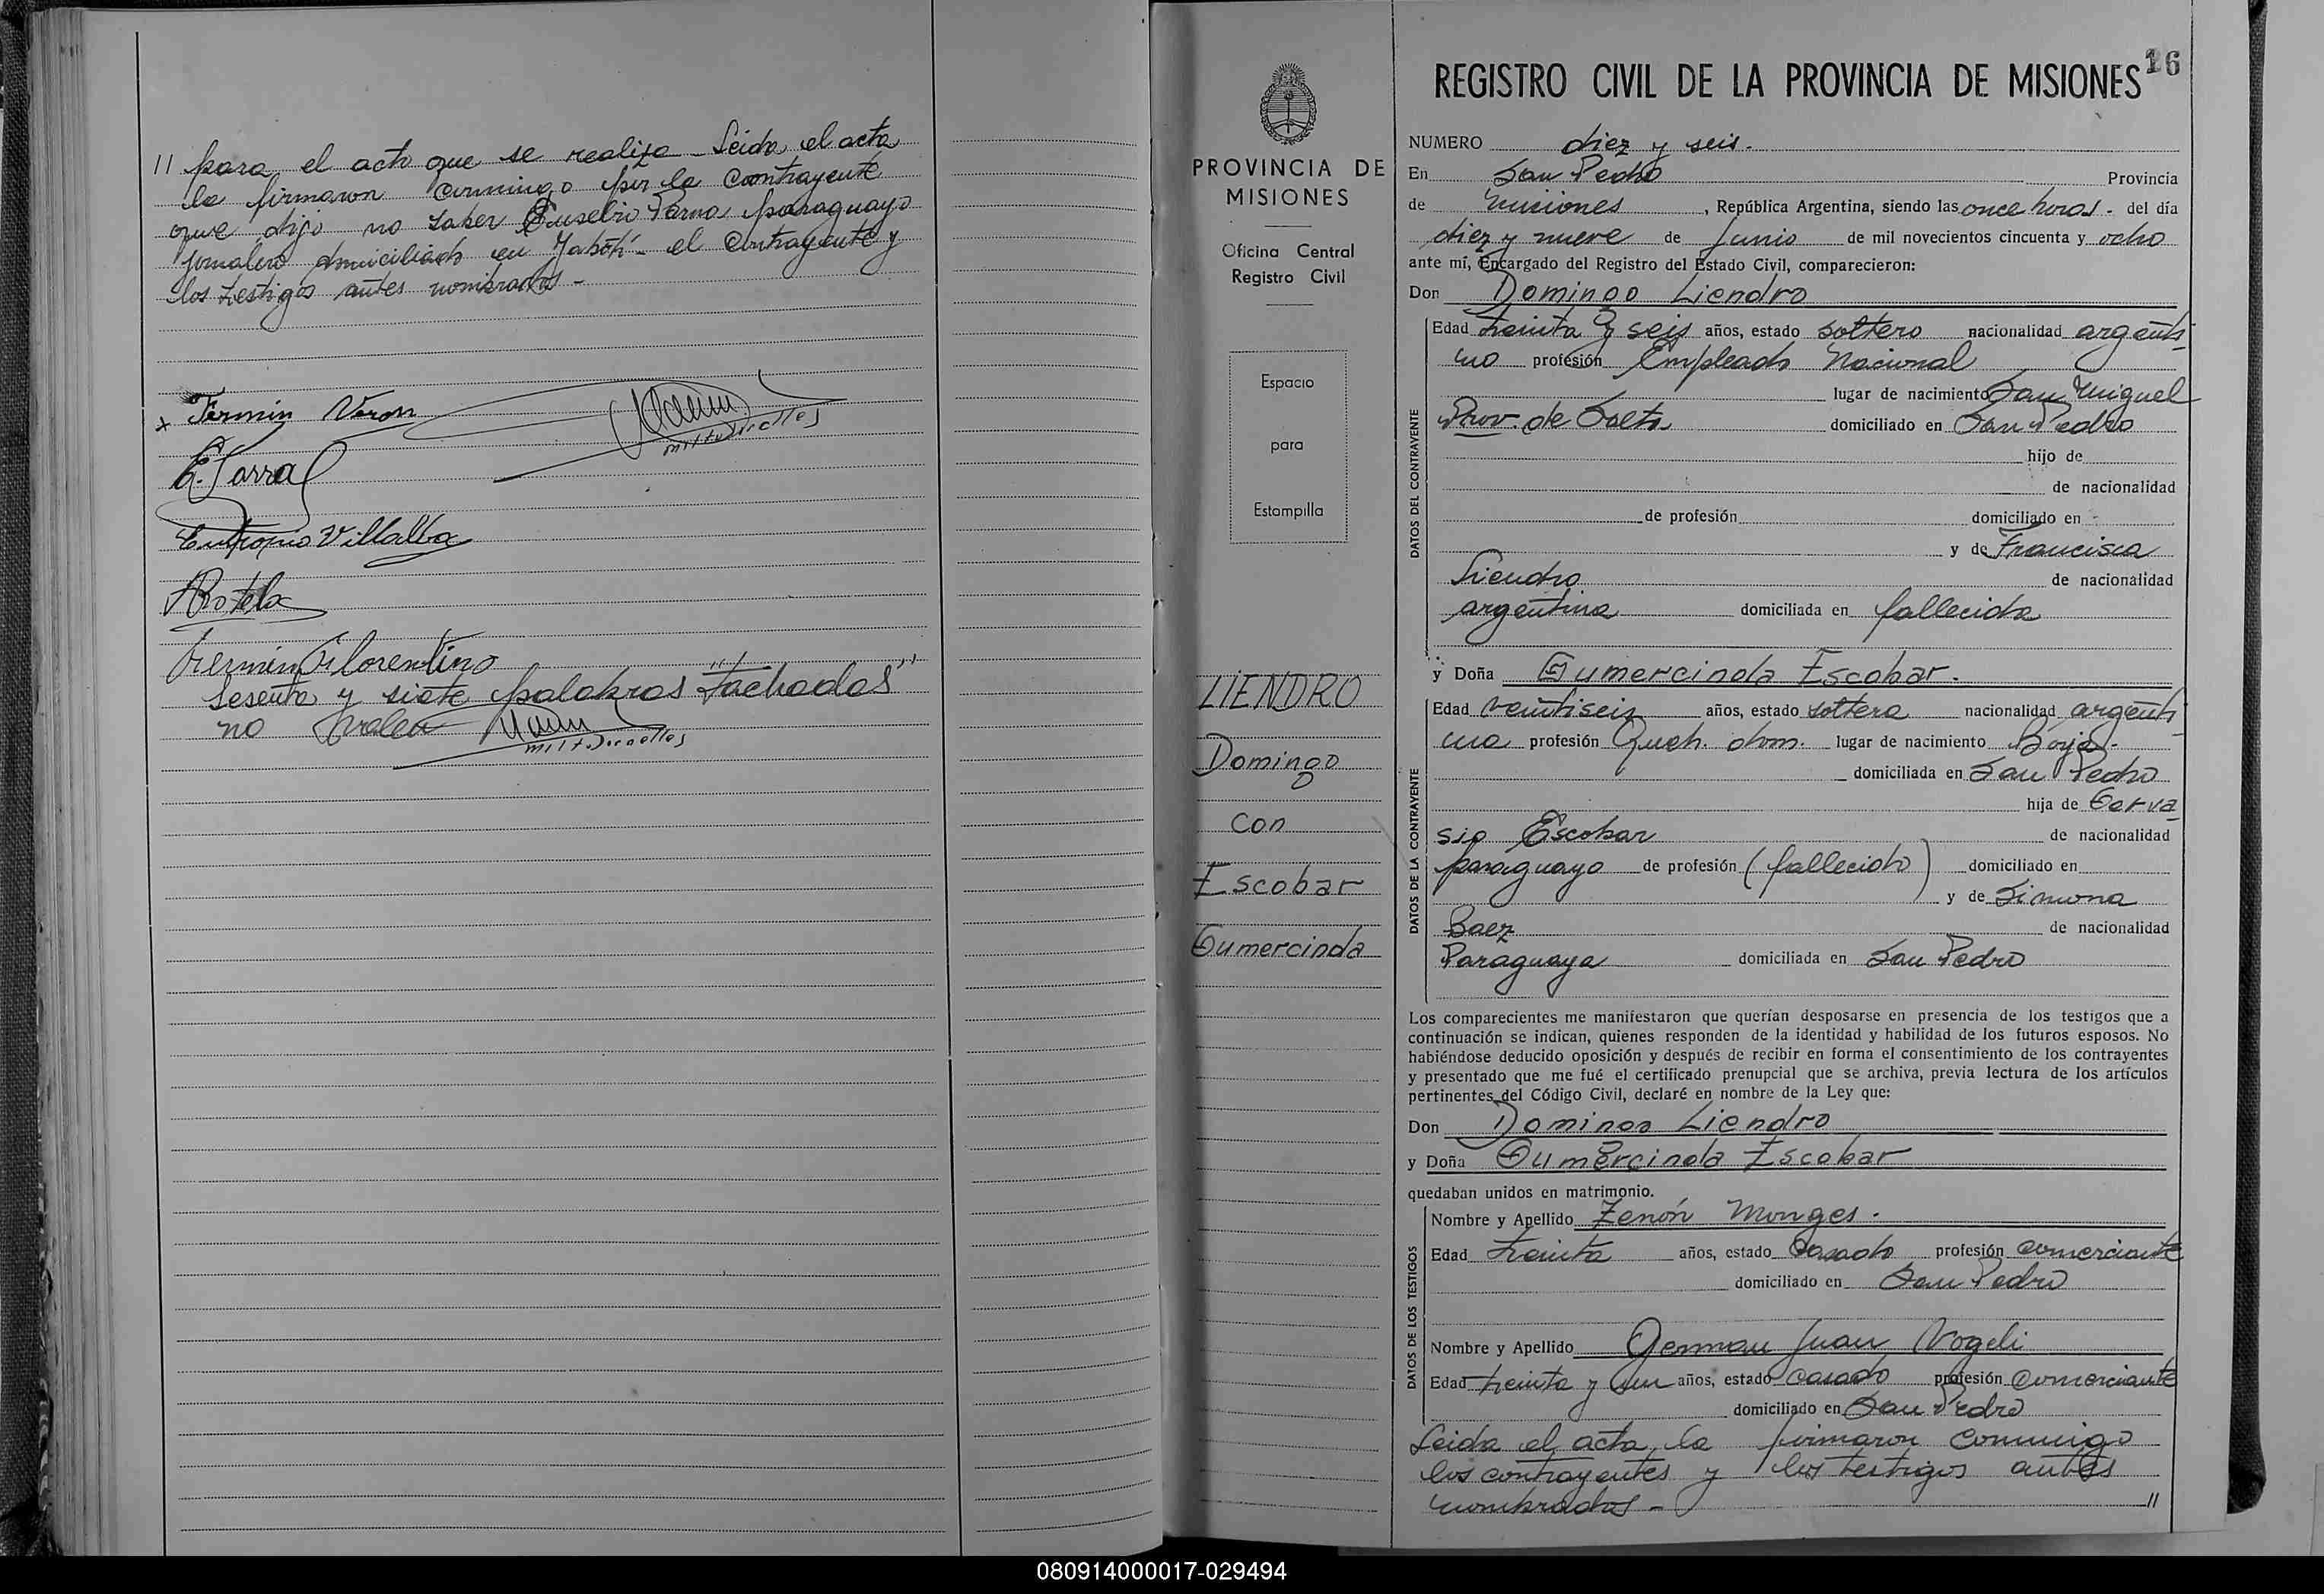 // para el acto que se realiza - Leida el acta
la firmaron conmigo por la contrayente
que dijo no saber Eusebio Parna paraguayo
jornalero domiciliado en Yabotí - el contrayente y
los testigos antes nombrados -
x Fermin Veron
E. Jarra
Eutropio Villalba
Rotela
Fermin Florentino
Sesenta y siete palabras "tachadas"
no valen
PROVINCIA DE
MISIONES
Oficina Central
Registro Civil
Espacio
para
Estampilla
LIENDRO
Domingo
con
Escobar
Gumercinda
16
REGISTRO CIVIL DE LA PROVINCIA DE MISIONES
NUMERO diez y seis.
En San Pedro Provincia
de Misiones, República Argentina, siendo las once horas - del día
diez y nueve de Junio de mil novecientos cincuenta y ocho
ante mí, Encargado del Registro del Estado Civil, comparecieron:
Don Domingo Liendro
DATOS DEL CONTRAYENTE
Edad treinta y seis años, estado soltero nacionalidad argenti-
no profesión Empleado Nacional
lugar de nacimiento San Miguel
Prov. de Salta domiciliado en San Pedro
hijo de
de nacionalidad
de profesión domiciliado en -
y de Francisca
Liendro de nacionalidad
argentina domiciliada en fallecida
y Doña Gumercinda Escobar.
DATOS DE LA CONTRAYENTE
Edad veintiseis años, estado soltera nacionalidad argenti-
na profesión Queh. dom. lugar de nacimiento Borja -
domiciliada en San Pedro
hija de Gerva-
sio Escobar de nacionalidad
paraguayo de profesión (fallecido) domiciliado en
y de Simona
Baez de nacionalidad
Paraguaya domiciliada en San Pedro
Los comparecientes me manifestaron que querían desposarse en presencia de los testigos que a
continuación se indican, quienes responden de la identidad y habilidad de los futuros esposos. No
habiéndose deducido oposición y después de recibir en forma el consentimiento de los contrayentes
y presentado que me fué el certificado prenupcial que se archiva, previa lectura de los artículos
pertinentes del Código Civil, declaré en nombre de la Ley que:
Don Domingo Liendro
y Doña Gumercinda Escobar
quedaban unidos en matrimonio.
DATOS DE LOS TESTIGOS
Nombre y Apellido Zenón Monges.
Edad treinta años, estado casado profesión comerciante
domiciliado en San Pedro
Nombre y Apellido German Juan Vogeli
Edad treinta y un años, estado casado profesión comerciante
domiciliado en San Pedro
Leida el acta, la firmaron conmigo
los contrayentes y los testigos antes
nombrados - //
080914000017-029494